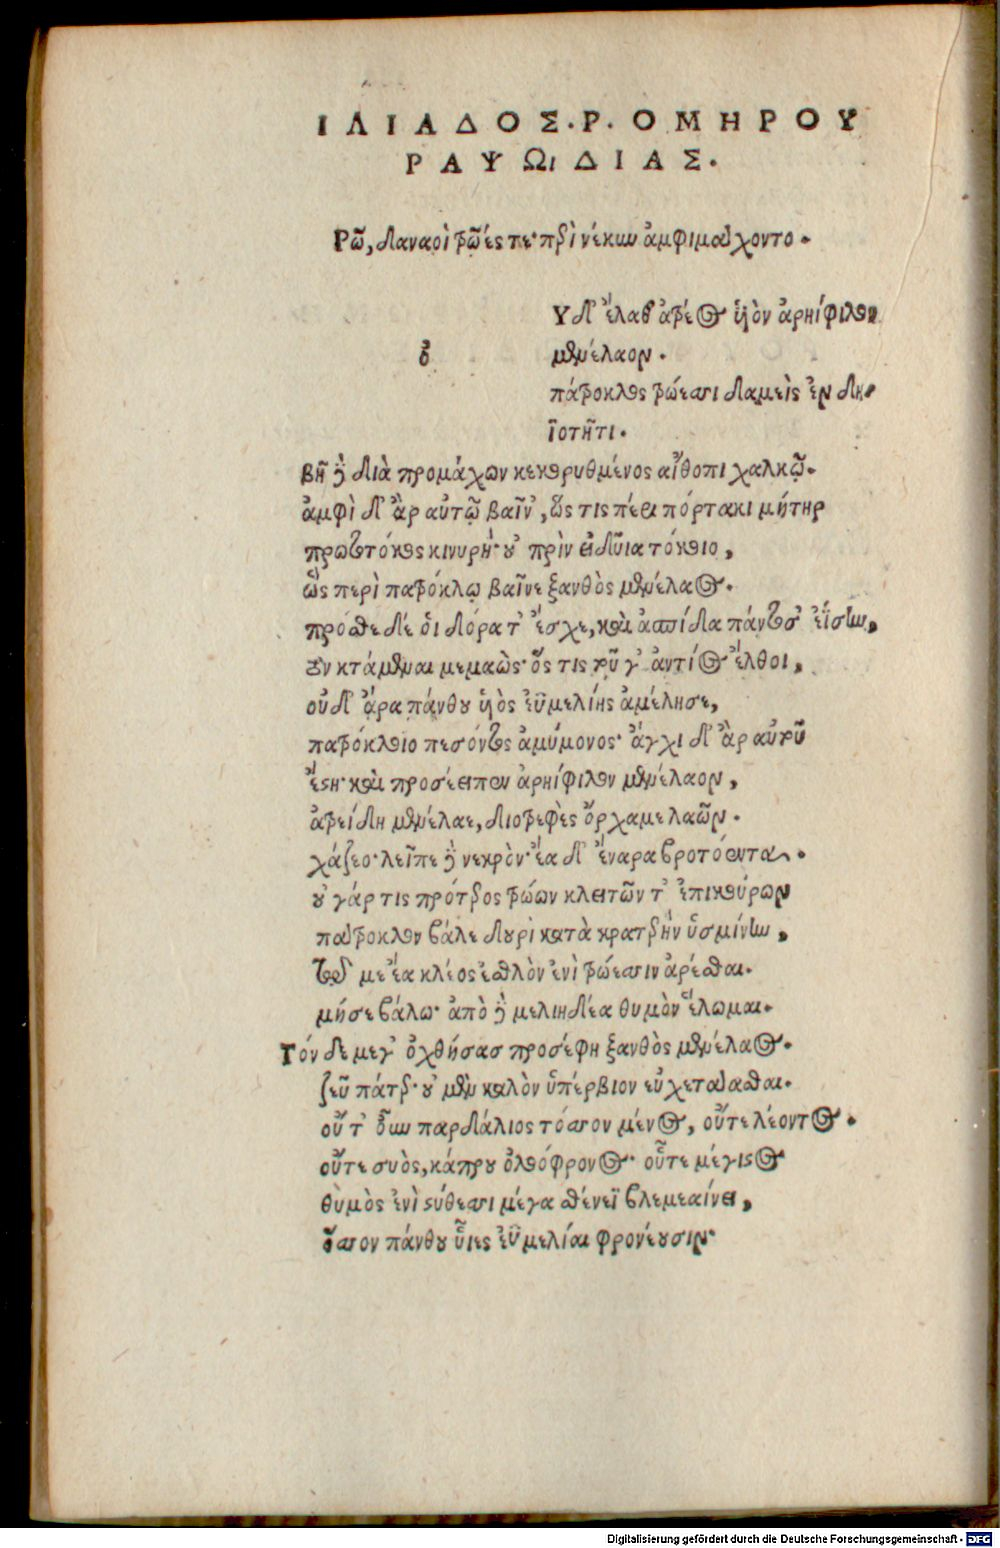 ΙΛΙΑΔΟΣ.Ρ.ΟΜΗΡΟΥ
ΡΑΨΩιΔΙΑΣ.
Ρῶ, δαναοὶ τρῶές τε· περὶ νέκυν ἀμφιμάχοντο.
Υδ' ἔλαθ' ἀτρέος ὑὸν ἀρηίφιλον
ὀ
μενέλαον.
πάτροκλος τρώεσσι δαμεὶς ἐν δη-
ϊοτῆτι.
βῆ δὲ διὰ προμάχων κεκορυθμένος αἴθοπι χαλκῷ.
ἀμφὶ δ' ἂρ αὐτῷ βαῖν', ὥς τις περὶ πόρτακι μήτηρ
πρωτοτόκος κινυρὴ· οὐ πρὶν εἰδυῖα τόκοιο,
ὣς περὶ πατρόκλῳ βαῖνε ξανθὸς μενέλαος.
πρόσθε δέ οἱ δόρα τ' ἔσχε, καὶ ἀσπίδα πάντοσ' ἐΐσην,
τὸν κτάμεναι μεμαὼς· ὅς τις τοῦ γ' ἀντίος ἔλθοι,
οὐδ' ἄρα πάνθου ὑὸς ἐϋμελίης ἀμέλησε,
πατρόκλοιο πεσόντος ἀμύμονος· ἄγχι δ' ἂρ αὐτοῦ
ἔστη· καὶ προσέειπεν ἀρηίφιλον μενέλαον,
ἀτρείδη μενέλαε, διοτρεφὲς ὄρχαμε λαῶν.
χάζεο· λεῖπε δὲ νεκρὸν· ἔα δ' ἔναρα βροτόεντα.
οὐ γάρ τις πρότερος τρώων κλειτῶν τ' ἐπικούρων
πάτροκλον βάλε δουρὶ κατὰ κρατερὴν ὑσμίνην,
τῷ με ἔα κλέος ἐσθλὸν ἐνὶ τρώεσσιν ἀρέσθαι.
μή σε βάλω· ἀπὸ δὲ μελιηδέα θυμὸν ἕλωμαι.
Τόν δε μεγ' ὀχθήσας προσέφη ξανθὸς μενέλαος.
ζεῦ πάτερ· οὐ μὲν καλὸν ὑπέρβιον εὐχετάασθαι.
οὔτ' οὖν παρδάλιος τόσσον μένος, οὔτε λέοντος.
οὔτε συὸς, κάπρου ὀλοόφρονος· οὗτε μέγιστος
θυμὸς ἐνὶ στήθεσσι μέγα σθένεϊ βλεμεαίνει,
ὅσσον πάνθου ὗιες ἐϋμελίαι φρονέουσιν·
Digitalisierung gefördert durch die Deutsche Forschungsgemeinschaft - DFG